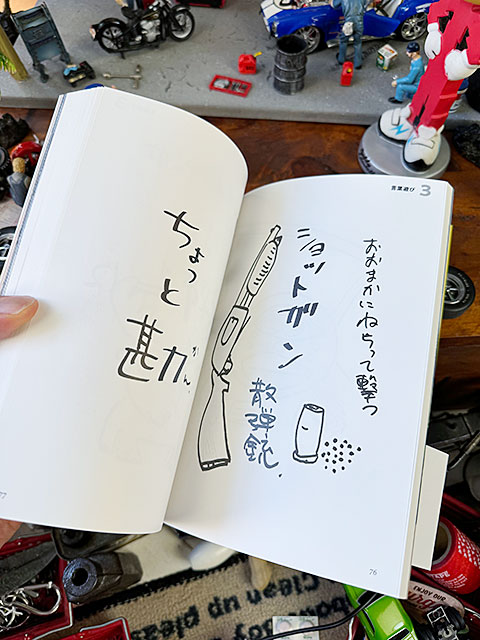 言葉遊び 3
おおまかにねらって撃つ
ショットガン
散弾銃.
76
ちょっと勘
かん
77
Clean up pleas
ENJOY OUR